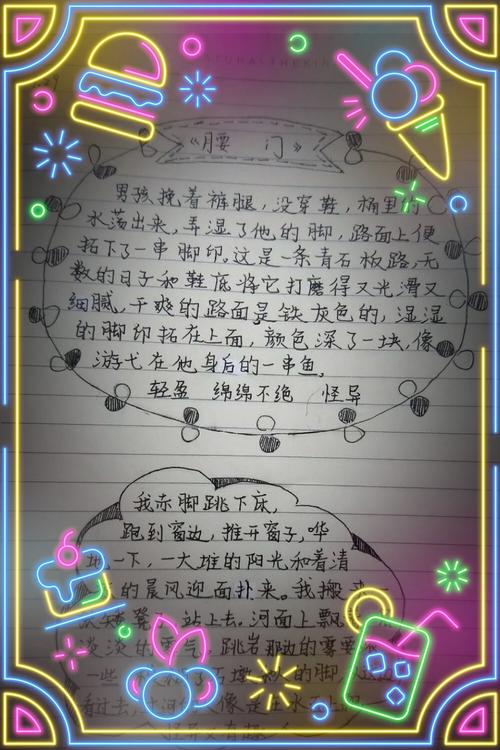 《腰 门》
男孩挽着裤腿，没穿鞋，桶里的
水荡出来，弄湿了他的脚，路面上便
拓下了一串脚印。这是一条青石板路，无
数的日子和鞋底将它打磨得又光滑又
细腻。干爽的路面是铁灰色的，湿湿
的脚印拓在上面，颜色深了一块，像
游弋在他身后的一串鱼。
轻盈 绵绵不绝 怪异
我赤脚跳下床，
跑到窗边，推开窗子，哗
地一下，一大堆的阳光和着清
的晨风迎面扑来。我搬
矮凳子，站上去。河面上飘
淡淡的雾气，跳岩那边的雾要
一些
看过去，